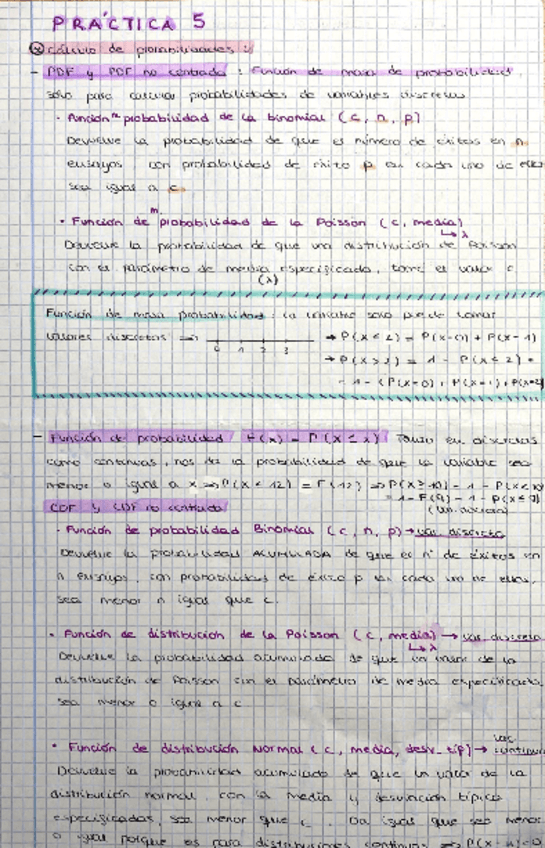 PRÁCTICA 5
* Cálculo de probabilidades:
- PDF y PDF no centrada: Función de masa de probabilidad,
sólo para calcular probabilidades de variables discretas
· Función m probabilidad de la binomial (c, n, p)
Devuelve la probabilidad de que el número de éxitos en n
ensayos con probabilidad de éxito p en cada uno de ellos
sea igual a c.
· Función de m. probabilidad de la Poisson (c, media)
↳ λ
Devuelve la probabilidad de que una distribución de Poisson
con el parámetro de media especificada, tome el valor c
(λ)
Función de masa probabilidad: la variable solo puede tomar
valores discretos ⇒ 0 1 2 3 → P(X < 2) = P(X=0) + P(X=1)
→ P(X > 2) = 1 - P(X ≤ 2) =
= 1 - (P(X=0) + P(X=1) + P(X=2)
- Función de probabilidad F(x) = P(X ≤ x) Tanto en discretas
como continuas, nos da la probabilidad de que la variable sea
menor o igual a x ⇒ P(X ≤ 12) = F(12) ⇒ P(X ≥ 10) = 1 - P(X < 10)
= 1 - F(9) = 1 - P(X ≤ 9)
CDF y CDF no centrada
· Función de probabilidad Binomial (c, n, p) → var. discreta
Devuelve la probabilidad ACUMULADA de que el nº de éxitos en
n ensayos, con probabilidad de éxito p en cada uno de ellos,
sea menor o igual que c.
· Función de distribución de la Poisson (c, media) → var. discreta
↳ λ
Devuelve la probabilidad acumulada de que un valor de la
distribución de Poisson con el parámetro de media especificada
sea menor o igual a c
· Función de distribución Normal (c, media, desv_tip) → var. continua
Devuelve la probabilidad acumulada de que un valor de la
distribución normal, con la media y desviación típica
especificadas, sea menor que c. Da igual que sea menor
o igual porque es para distribuciones continuas ⇒ P(X=x)=0